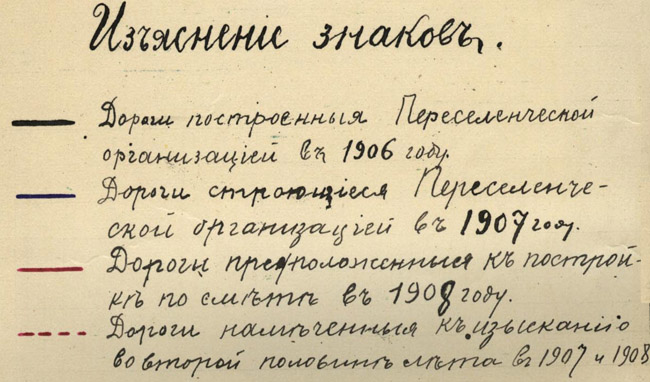 Изъясненіе знаковъ.
Дороги построенныя Переселенческой
организаціей въ 1906 году.
Дороги строющіеся Переселенче-
ской организаціей въ 1907 году.
Дороги предположенныя къ построй-
кѣ по смѣтѣ въ 1908 году.
Дороги намѣченныя къ изысканію
во второй половинѣ лѣта въ 1907 и 1908